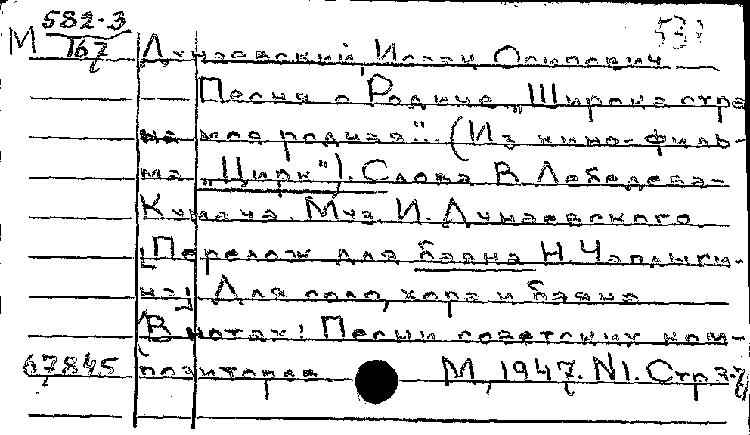 582.3
М 167 Дунаевский, Исаак Осипович
Песня о Родине „Широка стра
на моя родная". (Из кино-филь-
ма „Цирк"). Слова В. Лебедева-
Кумача. Муз. И. Дунаевского.
[Перелож. для баяна Н. Чаплыги-
на] Для соло, хора и баяна
(В нотах: Песни советских ком-
67845 позиторов М., 1947. N1. Стр. 3-7)